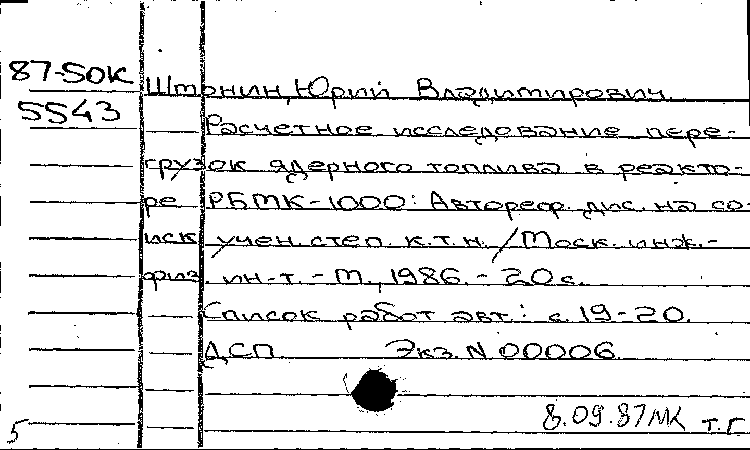 87-50К
5543
Штонин, Юрий Владимирович.
Расчетное исследование пере-
грузок ядерного топлива в реакто-
ре РБМК-1000: Автореф. дис. на со-
иск. учен. степ. к.т.н. / Моск. инж.-
физ. ин-т. - М., 1986. - 20 с.
Список работ авт.: с. 19-20.
ДСП Экз. N 00006.
8.09.87 МК т.г
5